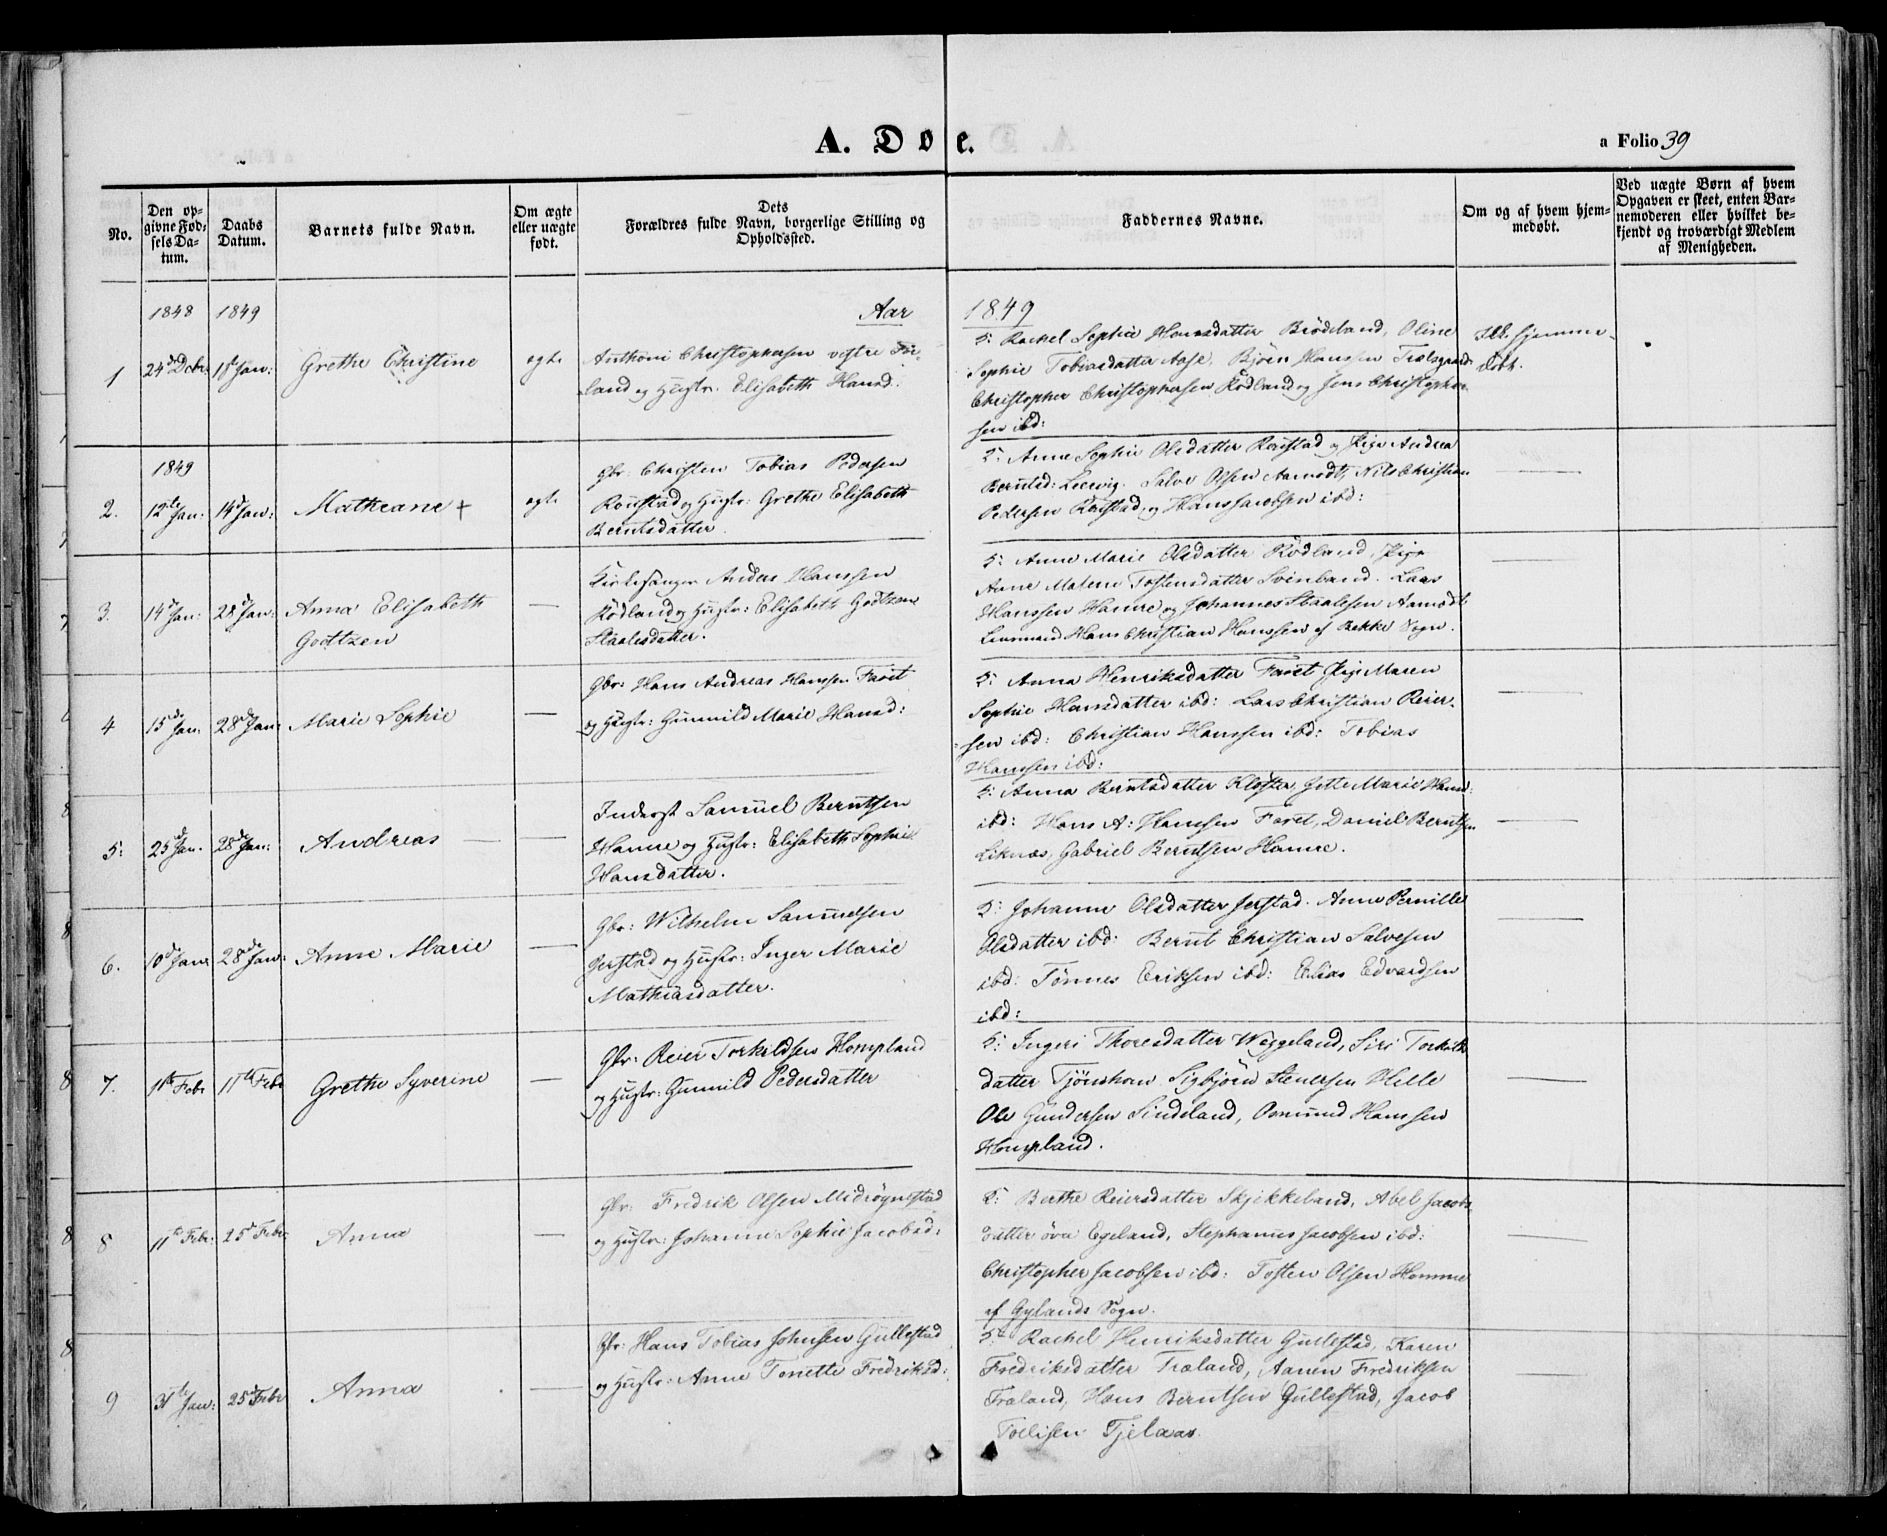 A. Døe.
a Folio 39
No.
Den opgivne Fødselsdatum.
Daabs Datum.
Barnets fulde Navn.
Om ægte eller uægte født.
Dets Forældres fulde Navn, borgerlige Stilling og Opholdssted.
Faddernes Navne.
Om og af hvem hjemmedøbt.
Ved uægte Børn af hvem Opgaven er skeet, enten Barnemoderen eller hvilket bekjendt og troværdigt Medlem af Menigheden.
1848 1849 Aar 1849
1 24de Decbr 1ste Jan: Grethe Christine egte
Anthoni Christophersen vestre
land og Hustr. Elisabeth Hansd:
5: Rachel Sophie Hansdatter Brödeland, Oline
Sophie Tobiasdatter Aase, Björn Hanssen
Christopher Christophersen Rödland og Jens Christopher
sen ibd:
Ikke hjemme-
döbt.
1849
2. 12te Jan: 14de Jan: Matheane + egte
Gbr: Christen Tobias Pedersen
Röiestad og Hustr: Grethe Elisabeth
Berntsdatter.
5: Anne Sophie Olsdatter Röistad og Pige Andrea
Berntsd: Leervig. Salve Olsen Aamodt, Nils Christian
Pedersen Röistad, og Hans Jacobsen ibd:
3. 14de Jan: 28de Jan: Anna Elisabeth
Godtzen
Kirkesanger Anders Hanssen
Rödland og Hustr: Elisabeth Godtzen
Staalesdatter.
5: Anne Marie Olsdatter Rödland, Pige
Anne Malene Tostensdatter Svinland. Lars
Hanssen Hamre og Johannes Staalesen Aamodt.
Lensmand Hans Christian Hanssen af Bakke Sogn.
4 15de Jan: 28de Jan: Marie Sophie
Gbr: Hans Andreas Hanssen Faret
og Hustr: Gunnild Marie Hansd:
5: Anna Henriksdatter Faret Pige Maren
Sophie Hansdatter ibd: Lars Christian Reier-
sen ibd: Christian Hanssen ibd: Tobias
Hanssen ibd:
5: 25de Jan: 28de Jan: Andreas
Inderst Samuel Berntsen
Hamre og Hustr: Elisabeth Sophie
Hansdatter.
5: Anna Berntsdatter Kloster, Gitte Marie Hansd:
ibd: Hans A: Hanssen Faret, Daniel Berntsen
Liknæs, Gabriel Berntsen Hamre.
6. 10de Jan: 28de Jan: Anne Marie
Gbr: Wilhelm Samuelsen
Jerstad og Hustr: Inger Marie
Mathiasdatter.
5: Johanne Olsdatter Jerstad. Anne Pernille
Olsdatter ibd: Bernt Christian Salvesen
ibd: Tönnes Eriksen ibd: Elias Edvardsen
ibd:
7. 1ste Febr 11te Febr Grethe Syverine
Gbr: Reier Torkildsen Hompland
og Hustr: Gunnild Pedersdatter
5: Ingeri Thoresdatter Weggeland, Siri Torkilds
datter Tjönshom Sigbjörn Stenersen Helle
Ole Gundersen Sindeland, Osmund Hanssen
Hompland.
8 11te Febr: 25de Febr: Anna
Gbr: Fredrik Olsen Midrögnestad
og Hustr: Johanne Sophie Jacobsd:
5: Berthe Reiersdatter Skjekkeland, Abel Jacobs
datter övre Egeland, Stephanus Jacobsen ibd:
Christopher Jacobsen ibd: Tosten Olsen Homme
af Gylands Sogn.
9 31te Jan: 25de Febr Anna
Gbr: Hans Tobias Johnsen Gullestad
og Hustr: Anne Tonette Fredriksd:
5: Rachel Henriksdatter Gullestad, Karen
Fredriksdatter Træland, Aanen Fredriksen
Træland, Hans Berntsen Gullestad, Jacob
Tollisen Tjelaas.